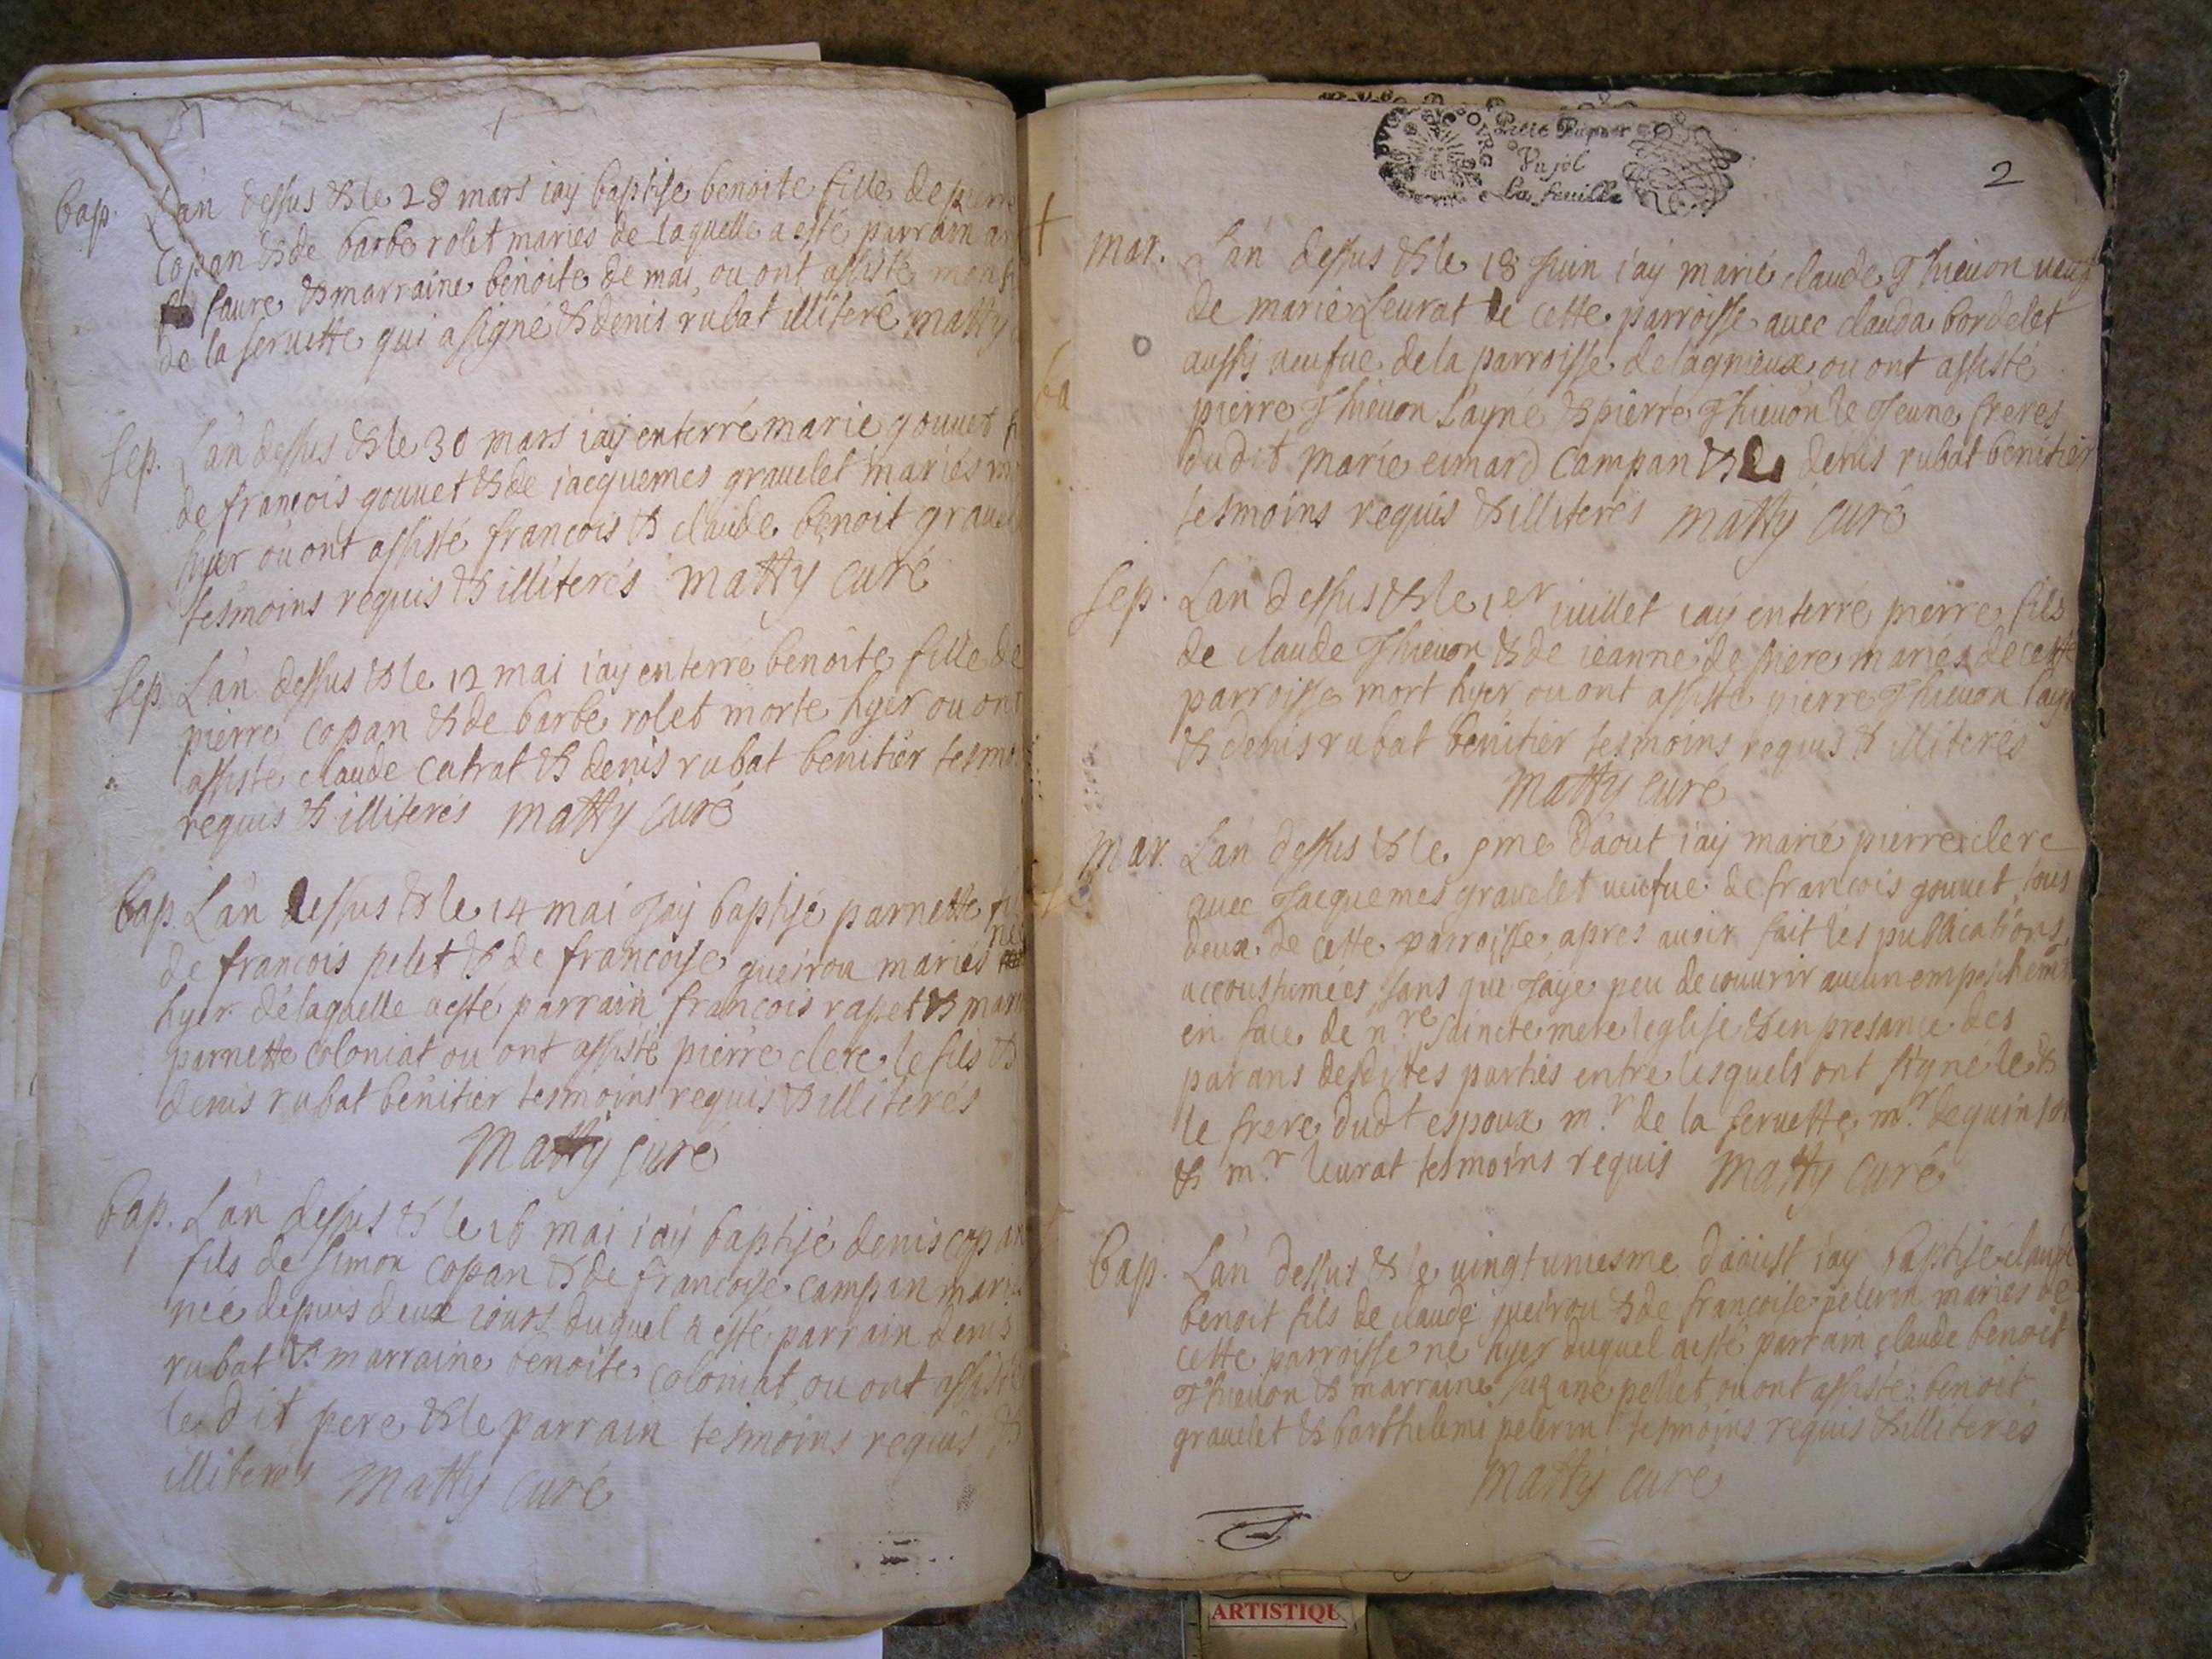 bap. L'an dessus & le 28 mars iay baptise benoite fille de pierre
copan & de barbe rolet mariés de laquelle a esté parrain
faure & marraine benoite de mai, ou ont assisté
de la seruette qui a signé & denis rubat illiteré matty
sep. L'an dessus & le 30 mars iay enterré marie gouuet
de françois gouuet & de iacquemes grauelet mariés
hyer ou ont assisté françois & claude benoit
tesmoins requis & illiterés matty curé
sep. L'an dessus & le 12 mai iay enterré benoite fille de
pierre copan & de barbe rolet morte hyer ou ont
assisté claude catrat & denis rubat benitier
requis & illiterés matty curé
bap. L'an dessus & le 14 mai Jay baptisé parnette
de françois pelet & de françoise gueirou mariés née
hyer de laquelle a esté parrain françois rapet &
parnette coloniat ou ont assisté pierre clerc le fils &
denis rubat benitier tesmoins requis & illiterés
Matty curé
bap. L'an dessus & le 16 mai iay baptisé denis copan
fils de simon copan & de françoise campan
neé depuis deux iours duquel a esté parrain denis
rubat & marraine benoite coloniat, ou ont assisté
le dit pere & le parrain tesmoins requis &
illiterés Matty curé
Petit Papier
Un sol
La feuille
2
mar. L'an dessus & le 18 Juin iay marié claude Thieuon
de marie Leurat de cette parroisse auec clauda bordelet
aussy ueufue de la parroisse de lagnieux ou ont assisté
pierre Thieuon l'ayné & pierre Thieuon le Jeune freres
dudit marié eimard campan & denis rubat benitier
tesmoins requis & illiterés matty curé
sep. L'an dessus & le 1er iuillet iay enterré pierre fils
de claude Thieuon & de ieanne de piere mariés de cette
parroisse mort hyer, ou ont assisté pierre Thieuon
& denis rubat benitier tesmoins requis & illiterés
Matty curé
mar. L'an dessus & le 5me d'aout iay marié pierre clerc
auec Jacquemes grauelet ueufue de françois gouuet, tous
deux de cette parroisse apres auoir fait les publications
accoustumées, sans que Jaye peu decouurir aucun
en face de nre saincte mere leglise & en presance des
parans desdites parties entre lesquels ont signé
le frere dudt espoux mr de la seruette mr
& mr leurat tesmoins requis matty curé
bap. L'an dessus & le uingtuniesme d'aoust iay baptisé claude
benoit fils de claude queirou & de françoise pelerin mariés de
cette parroisse né hyer duquel a esté parrain claude benoit
Thieuon & marraine suzane pellet, ou ont assisté benoit
grauelet & barthelemi pelerin tesmoins requis & illiterés
Matty curé
ARTISTIQU